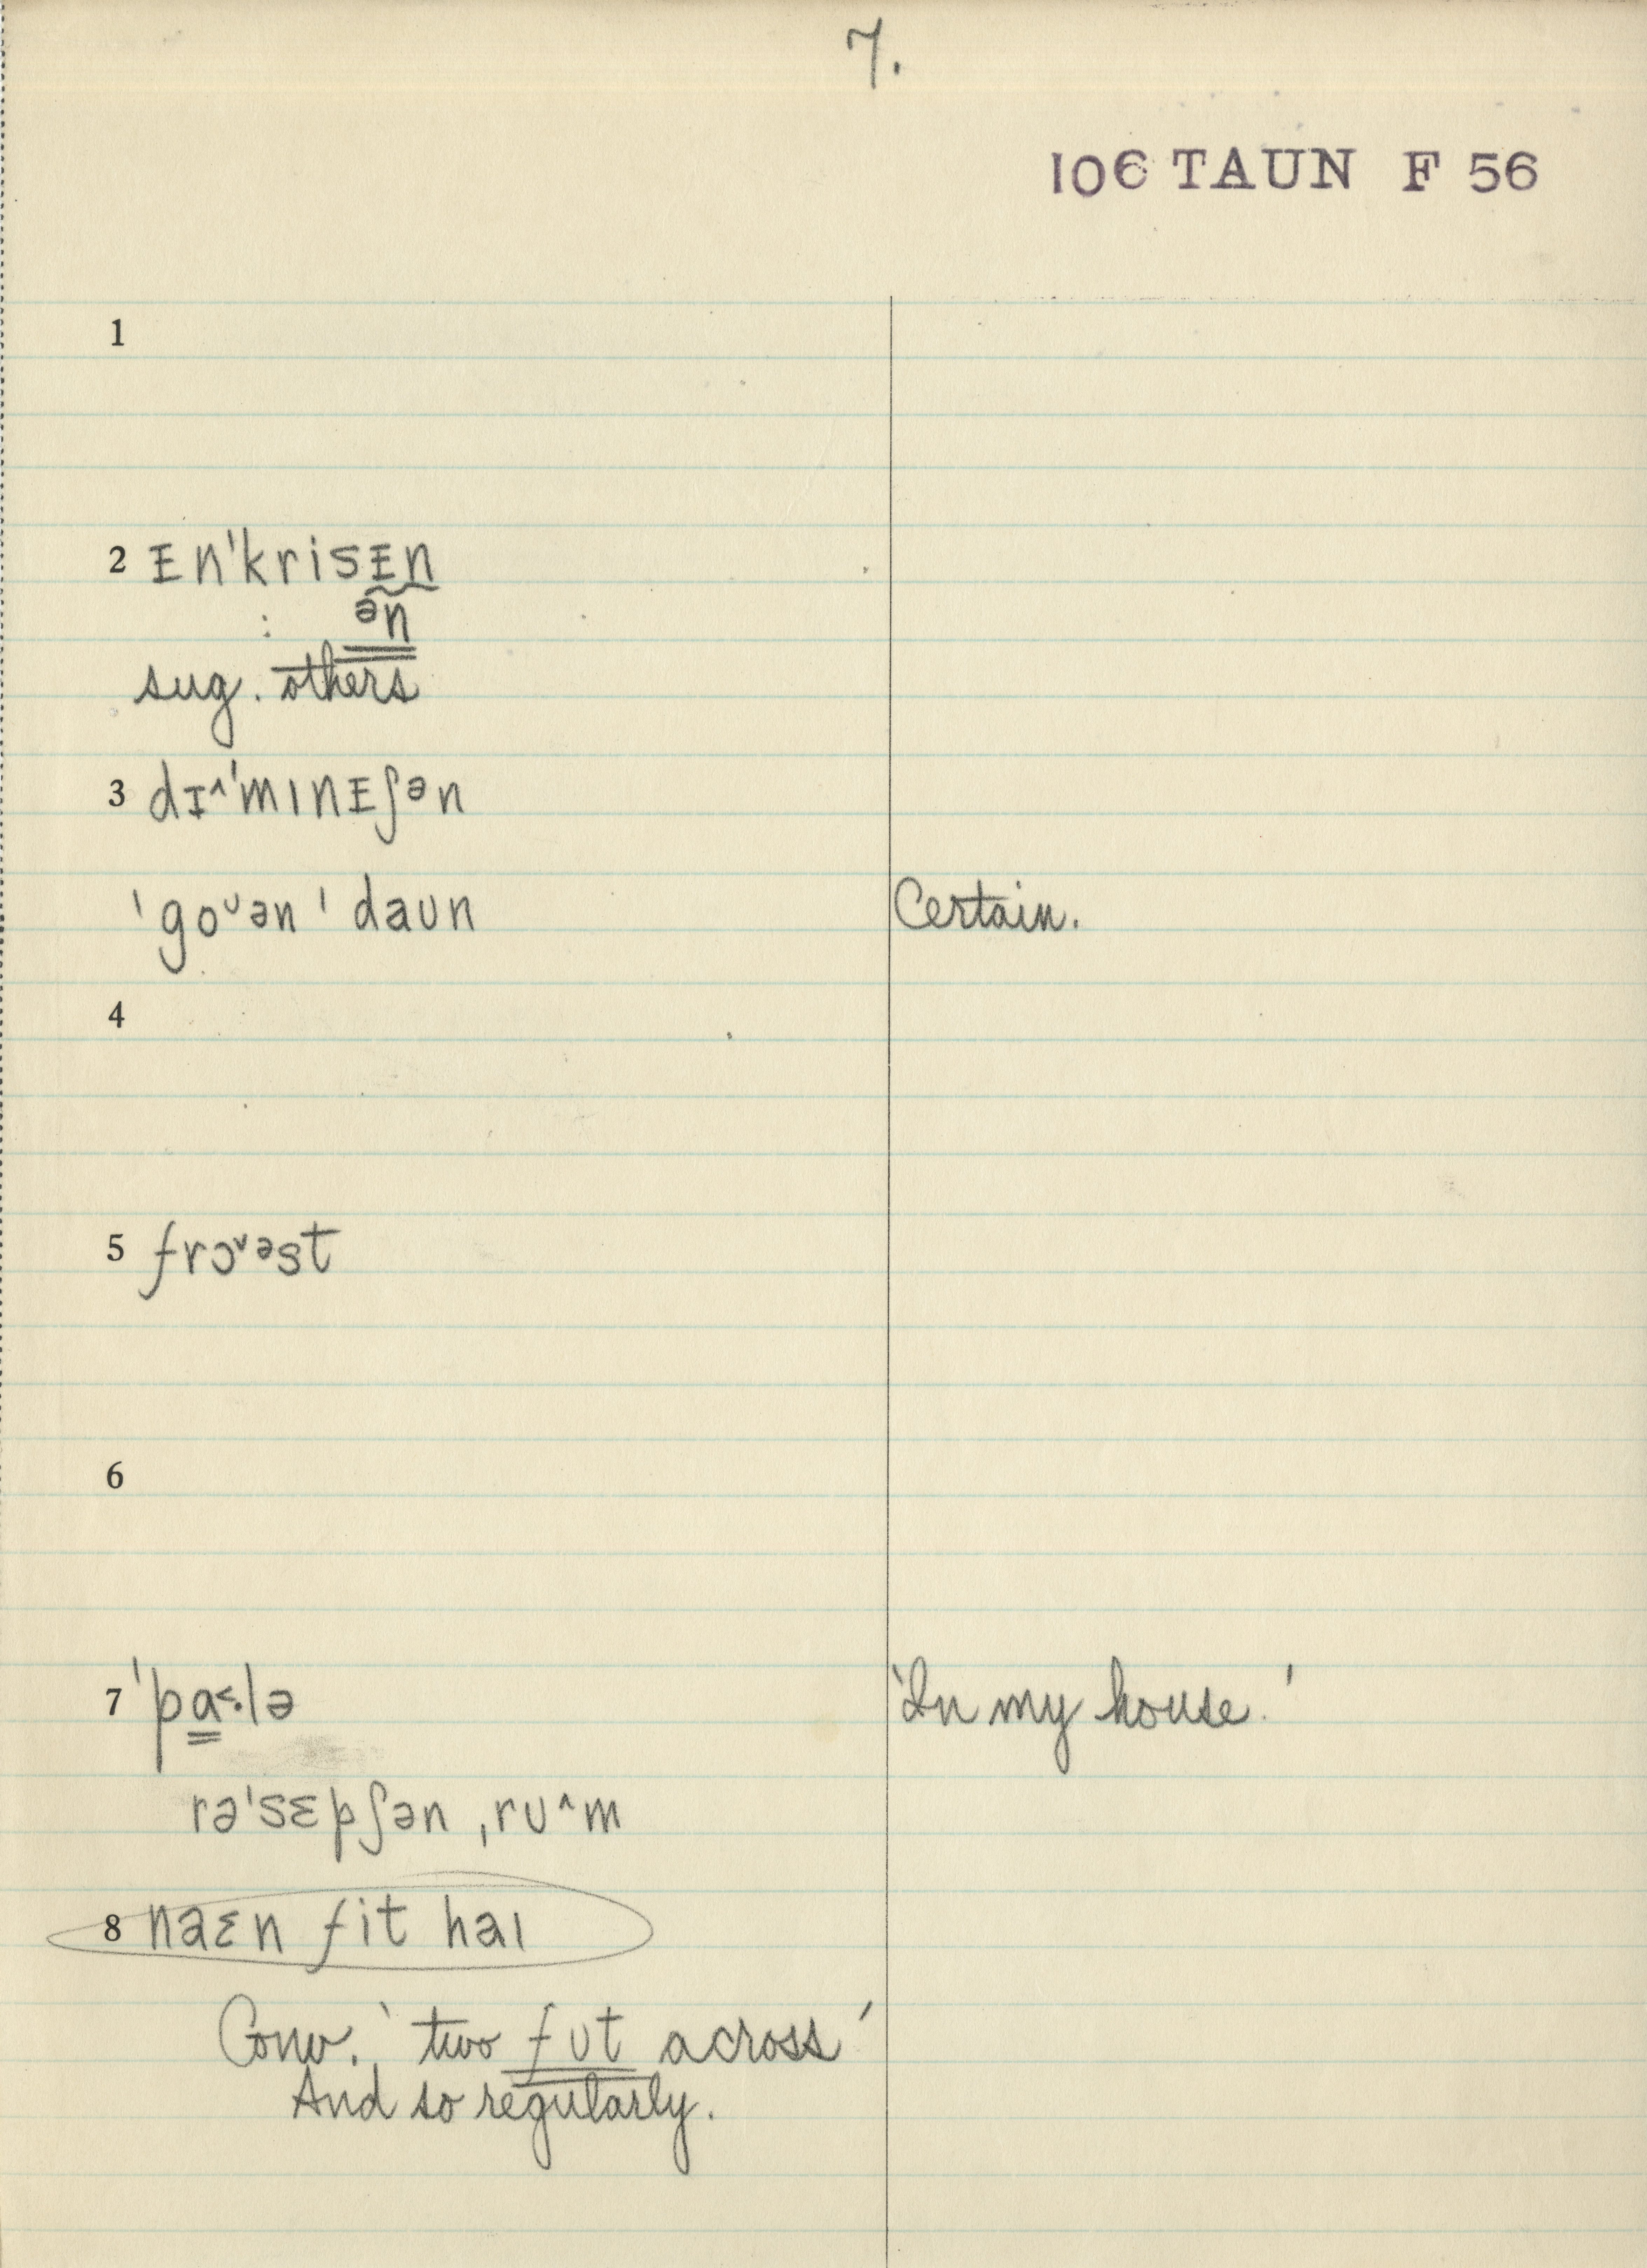 7.
106 TAUN F 56
1
2 ɪn'krisɪn
: ən
sug. others
3 dɪ^'mɪnɪʃən
'goᵛən 'daʊn Certain.
4
5 frɔᵛəst
6
7 'pɑ<·lə 'In my house.'
rə'sɛpʃən ,rʊ^m
8 naɛn fit haɪ
Conv. 'two fʊt across'
And so regularly.